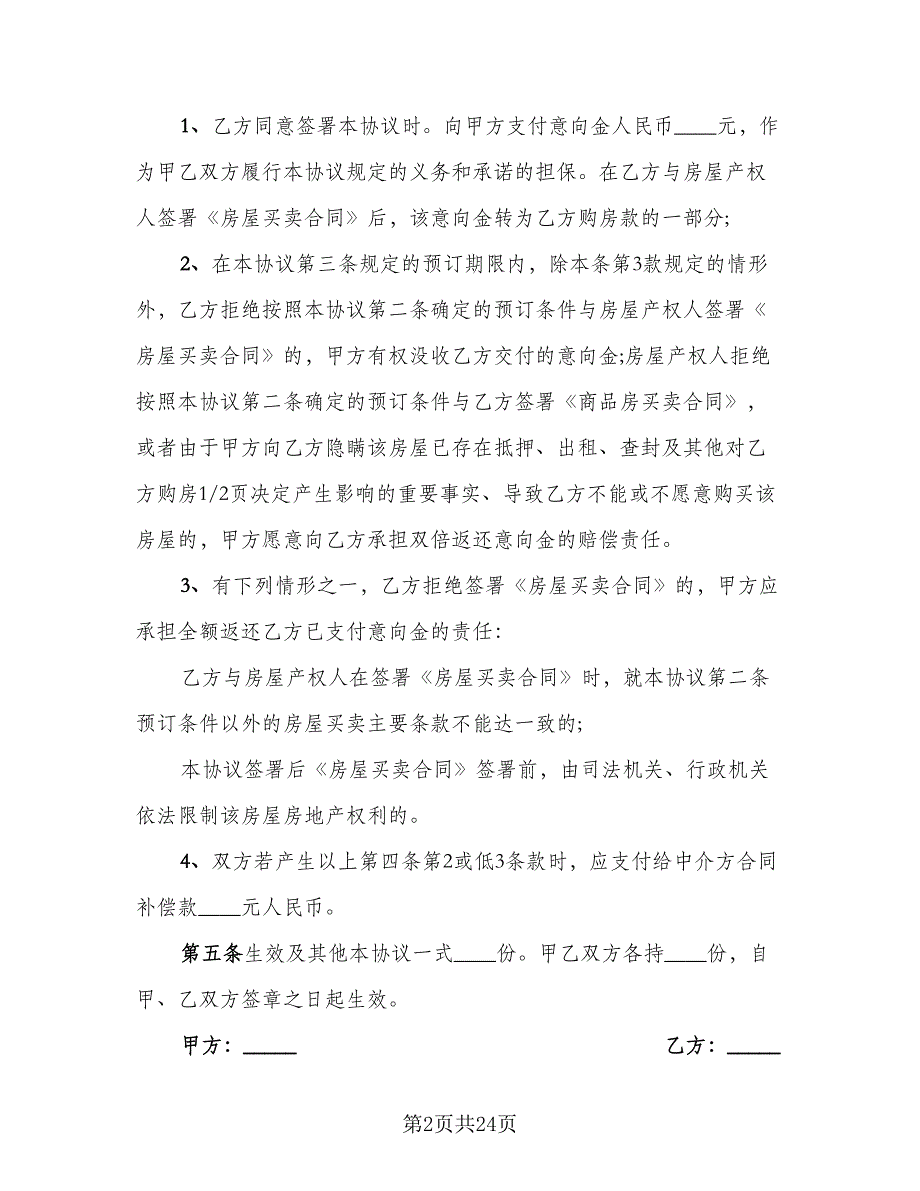 1、乙方同意签署本协议时。向甲方支付意向金人民币____元，作
为甲乙双方履行本协议规定的义务和承诺的担保。在乙方与房屋产权
人签署《房屋买卖合同》后，该意向金转为乙方购房款的一部分;
2、在本协议第三条规定的预订期限内，除本条第3款规定的情形
外，乙方拒绝按照本协议第二条确定的预订条件与房屋产权人签署《
房屋买卖合同》的，甲方有权没收乙方交付的意向金;房屋产权人拒绝
按照本协议第二条确定的预订条件与乙方签署《商品房买卖合同》，
或者由于甲方向乙方隐瞒该房屋已存在抵押、出租、查封及其他对乙
方购房1/2页决定产生影响的重要事实、导致乙方不能或不愿意购买该
房屋的，甲方愿意向乙方承担双倍返还意向金的赔偿责任。
3、有下列情形之一，乙方拒绝签署《房屋买卖合同》的，甲方应
承担全额返还乙方已支付意向金的责任：
乙方与房屋产权人在签署《房屋买卖合同》时，就本协议第二条
预订条件以外的房屋买卖主要条款不能达一致的;
本协议签署后《房屋买卖合同》签署前，由司法机关、行政机关
依法限制该房屋房地产权利的。
4、双方若产生以上第四条第2或低3条款时，应支付给中介方合同
补偿款____元人民币。
第五条生效及其他本协议一式____份。甲乙双方各持____份，自
甲、乙双方签章之日起生效。
甲方：_____ 乙方：_____
第2页共24页